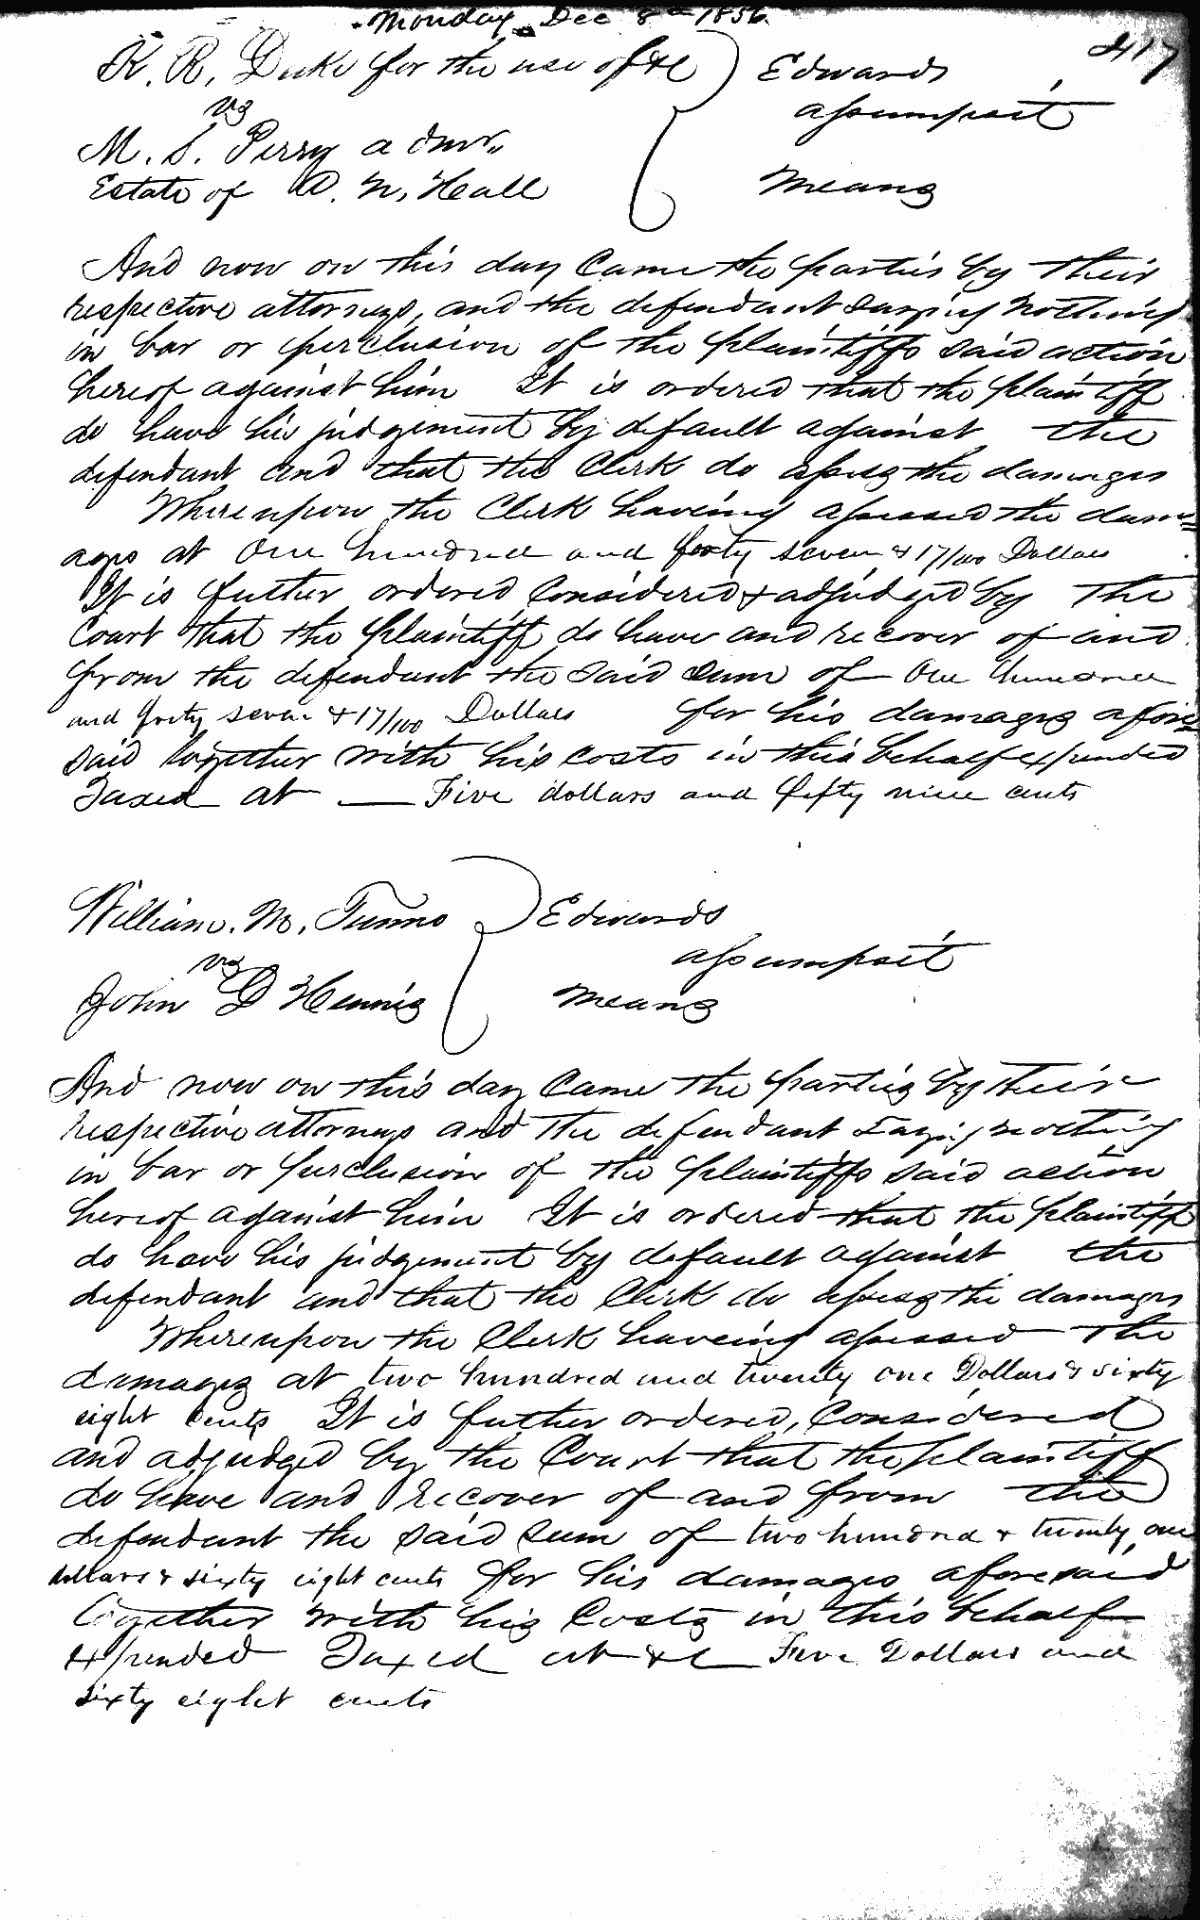 Monday, Dec 8th 1856.
417
K. R. Duke for the use of &c Edwards
vs assumpsit
M. S. Perry admr.
Estate of A. N. Hall Means
And now on this day Came the parties by their
respective attorneys, and the defendant saying nothing
in bar or perclusion of the plaintiffs said action
hereof against him It is ordered that the plaintiff
do have his judgement by default against the
defendant and that the Clerk do assess the damages
Whereupon the Clerk haveing assessed the dam=
ages at One hundred and forty seven & 17/100 Dollars
It is futher ordered Considered & adjudged by the
Court that the plaintiff do have and recover of and
from the defendant the said sum of One hundred
and forty seven & 17/100 Dollars for his damages afore=
said together with his costs in this behalf expended
Taxed at — Five dollars and fifty nine cents
William. M. Tunno Edwards
vs assumpsit
John D Hennis Means
And now on this day Came the parties by their
respective attorneys and the defendant saying nothing
in bar or perclusion of the plaintiffs said action
hereof against him It is ordered that the plaintiff
do have his judgement by default against the
defendant and that the Clerk do assess the damages
Whereupon the Clerk haveing assessed the
damages at two hundred and twenty one Dollars & sixty
eight cents It is futher ordered, Considered
and adjudged by the Court that the plaintiff
do have and recover of and from the
defendant the said sum of two hundred & twenty one
dollars & sixty eight cents for his damages aforesaid
together with his Costs in this behalf
expended Taxed at &c Five Dollars and
sixty eight cents